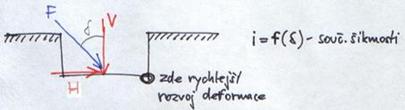 F δ V
i = f(δ) - souč. šikmosti
H
zde rychlejší
rozvoj deformace